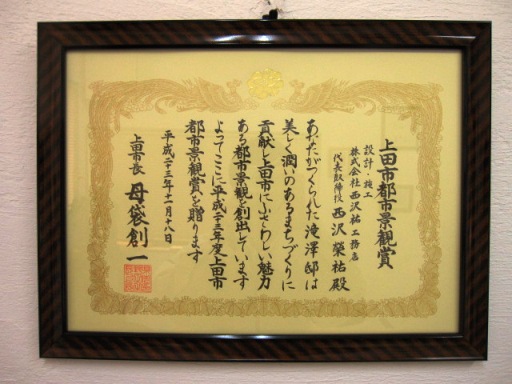 上田市都市景観賞
設計・施工
株式会社西沢祐工務店
代表取締役 西沢榮祐殿
あなたがつくられた滝澤邸は
美しく潤いのあるまちづくりに
貢献し上田市にふさわしい魅力
ある都市景観を創出しています
よってここに平成二十三年度上田市
都市景観賞を贈ります
平成二十三年十一月十八日
上田市長 母袋創一